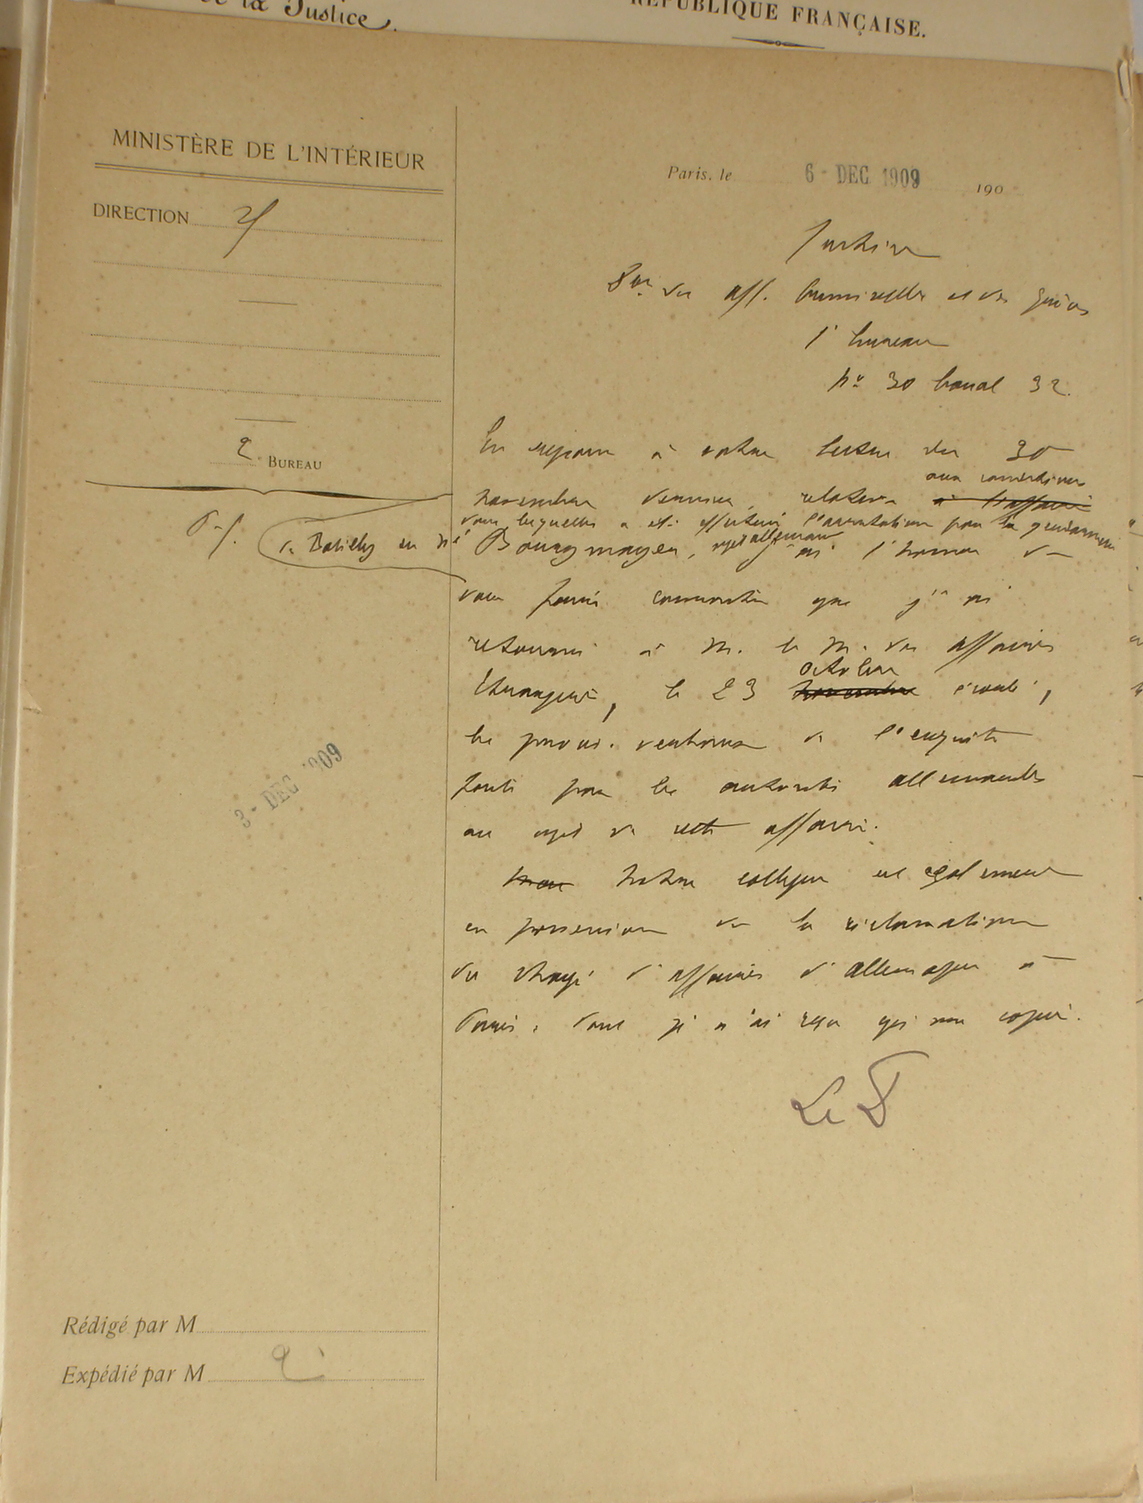 de la Justice.
RÉPUBLIQUE FRANÇAISE.
MINISTÈRE DE L'INTÉRIEUR
DIRECTION
2e BUREAU
Paris, le 6 - DEC 1909 190
Justice
Don des aff. criminelles et des grâces
1er bureau
No 30 banal 32.
En réponse à votre lettre du 30
novembre dernier, relative à l'affaire
aux conditions
dans lesquelles a été effectuée l'arrestation par la gendarmerie
de Batilly du né Bourgmayer, sujet allemand, j'ai l'honneur de
vous faire connaître que j'ai
retourné à M. le M. des affaires
étrangères, le 23 novembre octobre écoulé,
le procès-verbal de l'enquête
faite par les autorités allemandes
au sujet de cette affaire.
Mon Notre collègue est également
en possession de la réclamation
du chargé d'affaires d'Allemagne à
Paris, dont je n'ai reçu qu'une copie.
Le D
3 - DEC 1909
Rédigé par M
Expédié par M